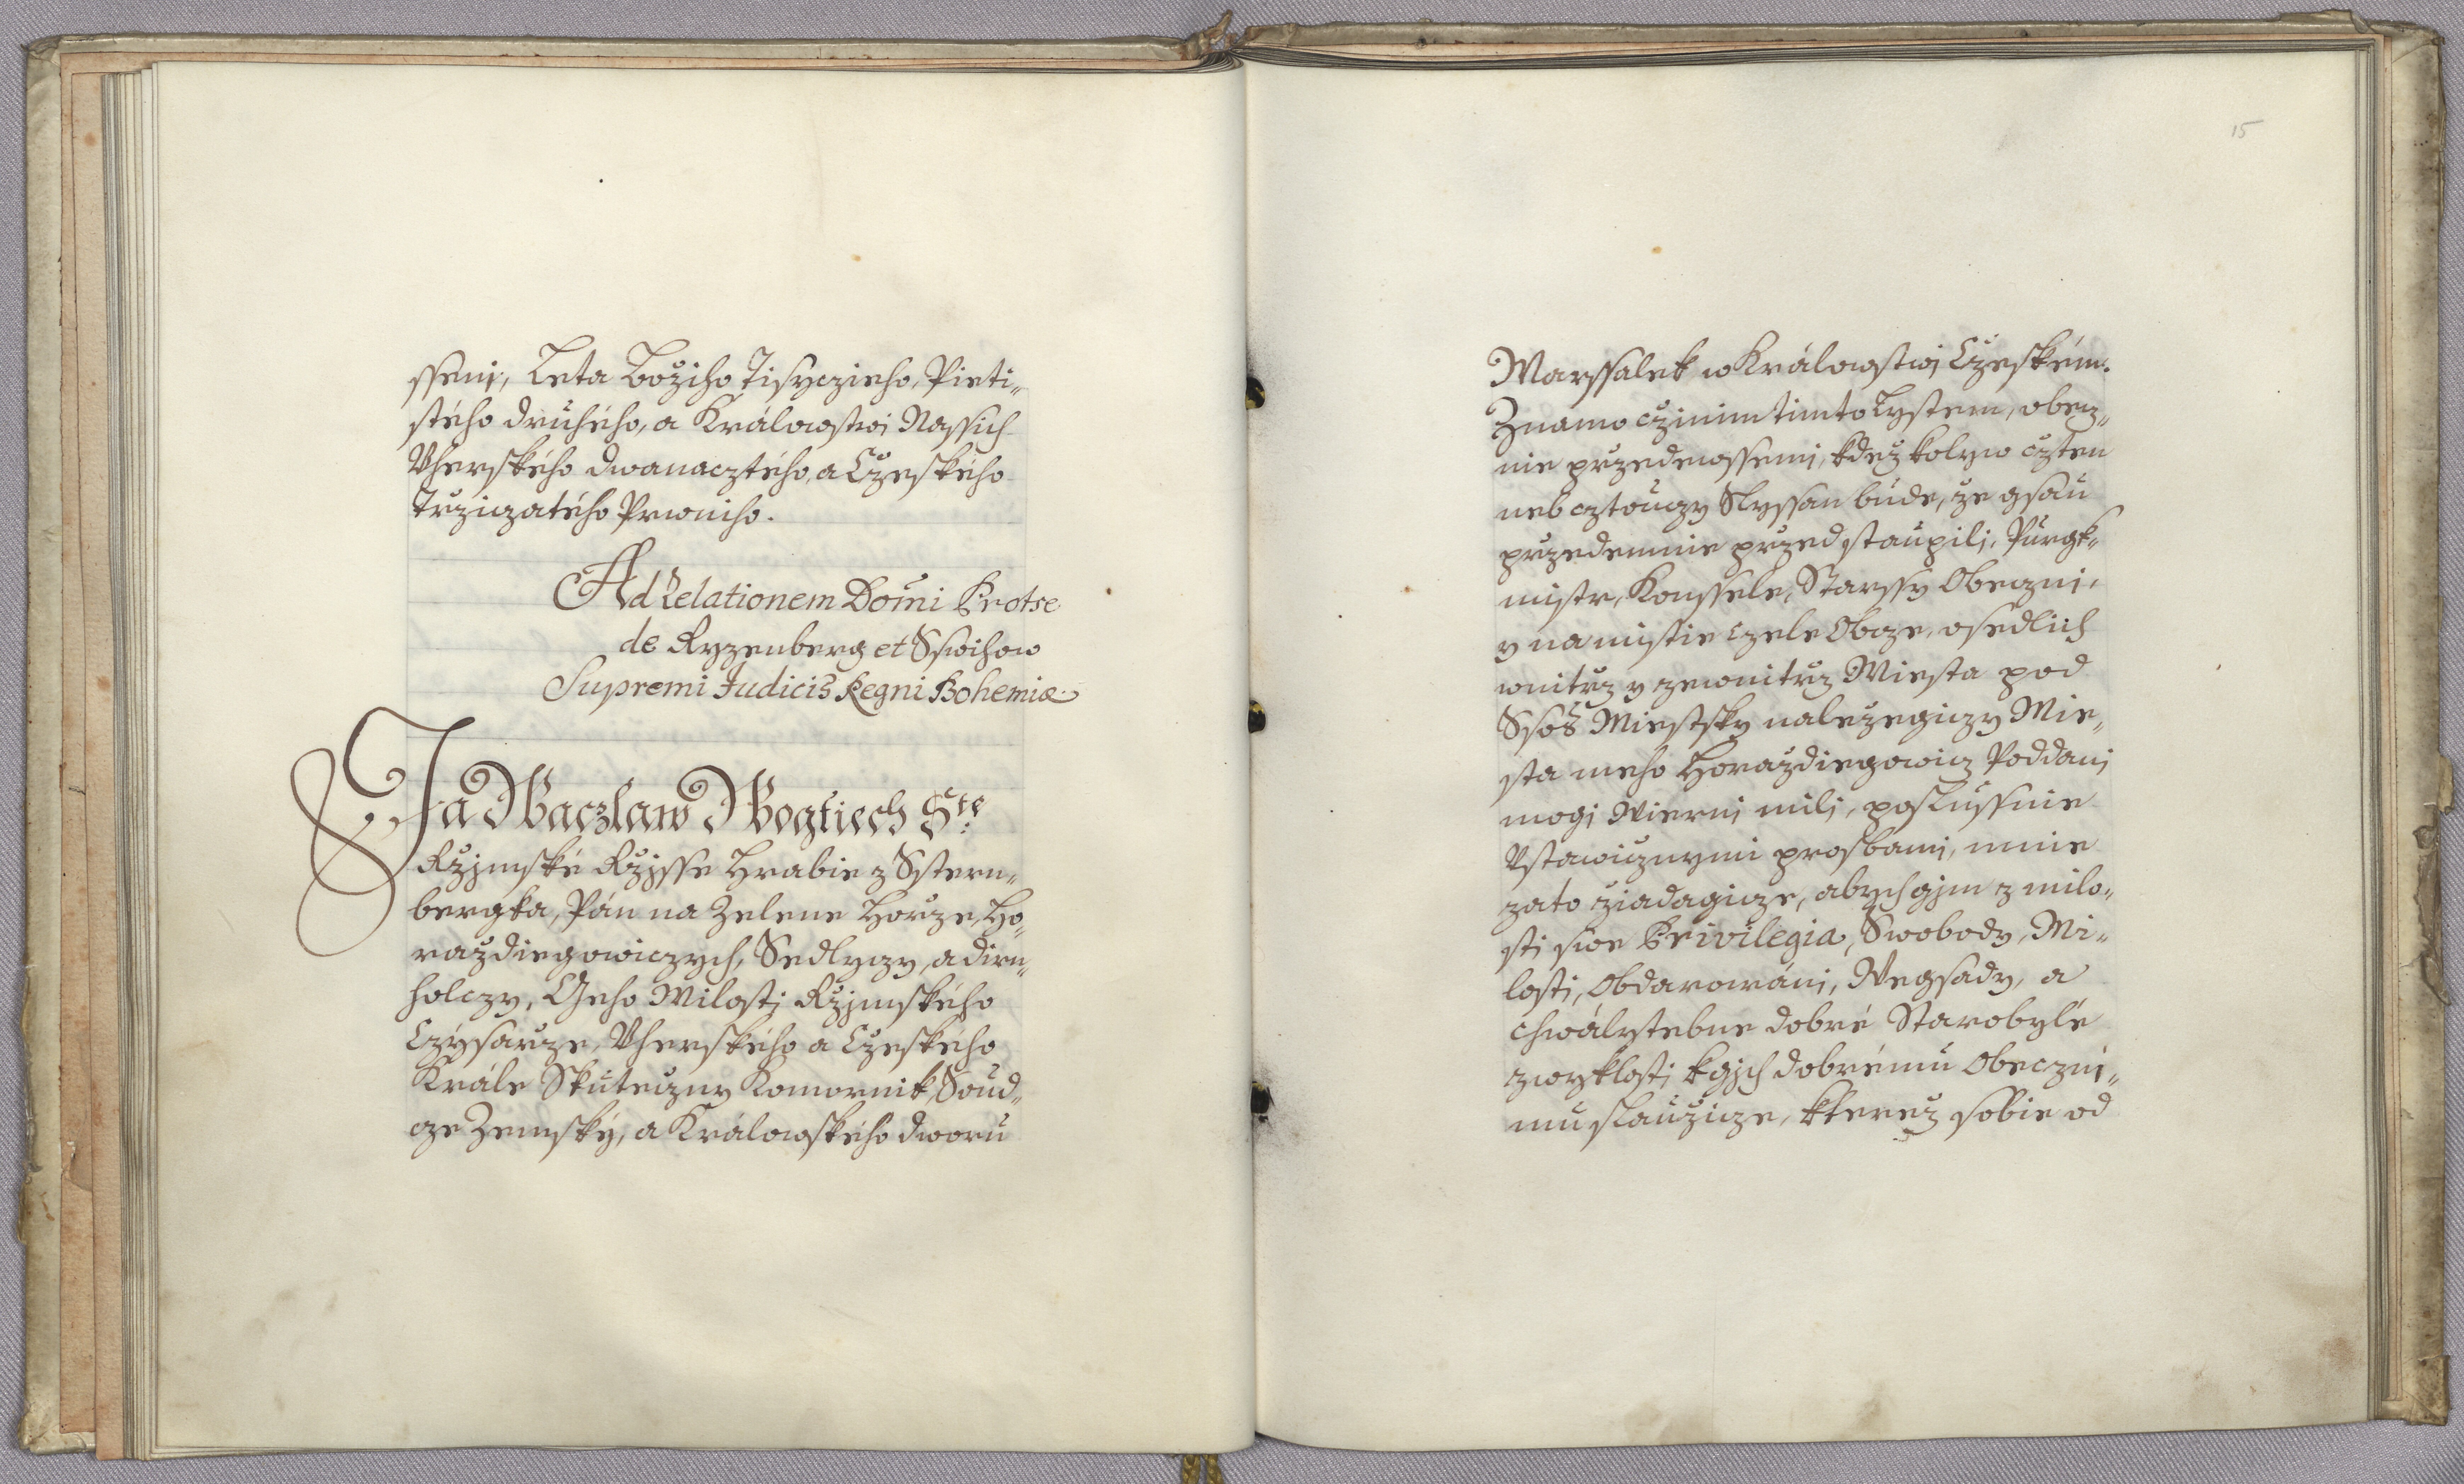 ssenj, Leta Božiho Tisyczieho, Pieti„
stého druhého, a Králowstwi Nassich
Vherského dwanacztého, a Czeského
Trzidczatého Prwniho.
Ad Relationem Domi Protse
de Ryzenberg et Sswihow
Supremi Judicis Regni Bohemiæ.
Ja Waczlaw Wogtiech Ste:
Rzjmské Rzjsse Hrabie z Sstern„
bergka, Pán na Zelene Horze, Ho„
raždiegowiczych, Sedlyczy, a dirn„
holczy, Geho Milosti Rzjmského
Czysarze, Vherského a Czeského
Krále Skuteczny Komornik, Soud„
cze Zemský, a Králowského dworu
15
Marssalek w Králowstwj Czeském.
Znamo czinim timto Lystem, obecz„
nie przedewssemi, kdež kolyw czten
neb cztouczy Slyssan bude, že gsau
przedemnie przedstaupili, Purgk„
mistr, Konssele, Starssy Obeczni,
y na mistie czele Obcze, osedlich
wnitrz y zewnitrz Miesta pod
Ssos Miestsky naležegiczy Mie„
sta meho Horaždiegowicz Poddani
mogi Wierni mili, poslussnie
Vstawicznymi prosbami, mnie
zato žiadagicze, abych gjm z milo„
sti swe Privilegia, Swobody, Mi„
losti, Obdarowáni, Wegsady, a
chwályteбne dobré Starobylé
zwyklosti kgjch dobrému Obeczni„
mu slaužicze, kterež sobie od